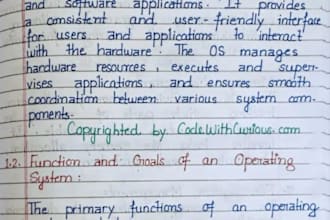 and software applications. It provides
a consistent and user-friendly interface
for users and applications to interact
with the hardware. The OS manages
hardware resources, executes and super-
vises applications, and ensures smooth
coordination between various system com-
ponents.
Copyrighted by CodeWithCurious.com
1.2. Function and Goals of an Operating
System:
The primary functions of an operating